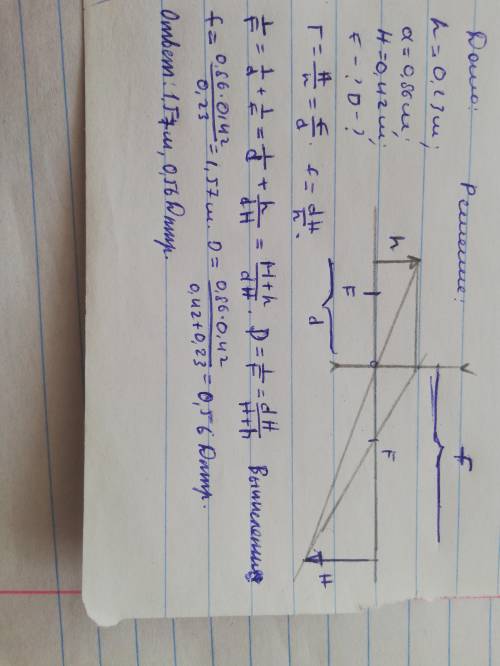 Дано: Решение:
h = 0,23 м;
d = 0,86 м;
H = 0,42 м;
F - ? D - ?
h
F
d
0
F
f
H
Г = H/h = f/d. f = dH/h.
1/F = 1/d + 1/f = 1/d + h/dH = H+h/dH. D = 1/F = dH/H+h Вычисления:
f = 0,86·0,42/0,23 = 1,57 м. D = 0,86·0,42/0,42+0,23 = 0,56 Дптр.
Ответ: 1,57 м, 0,56 Дптр.